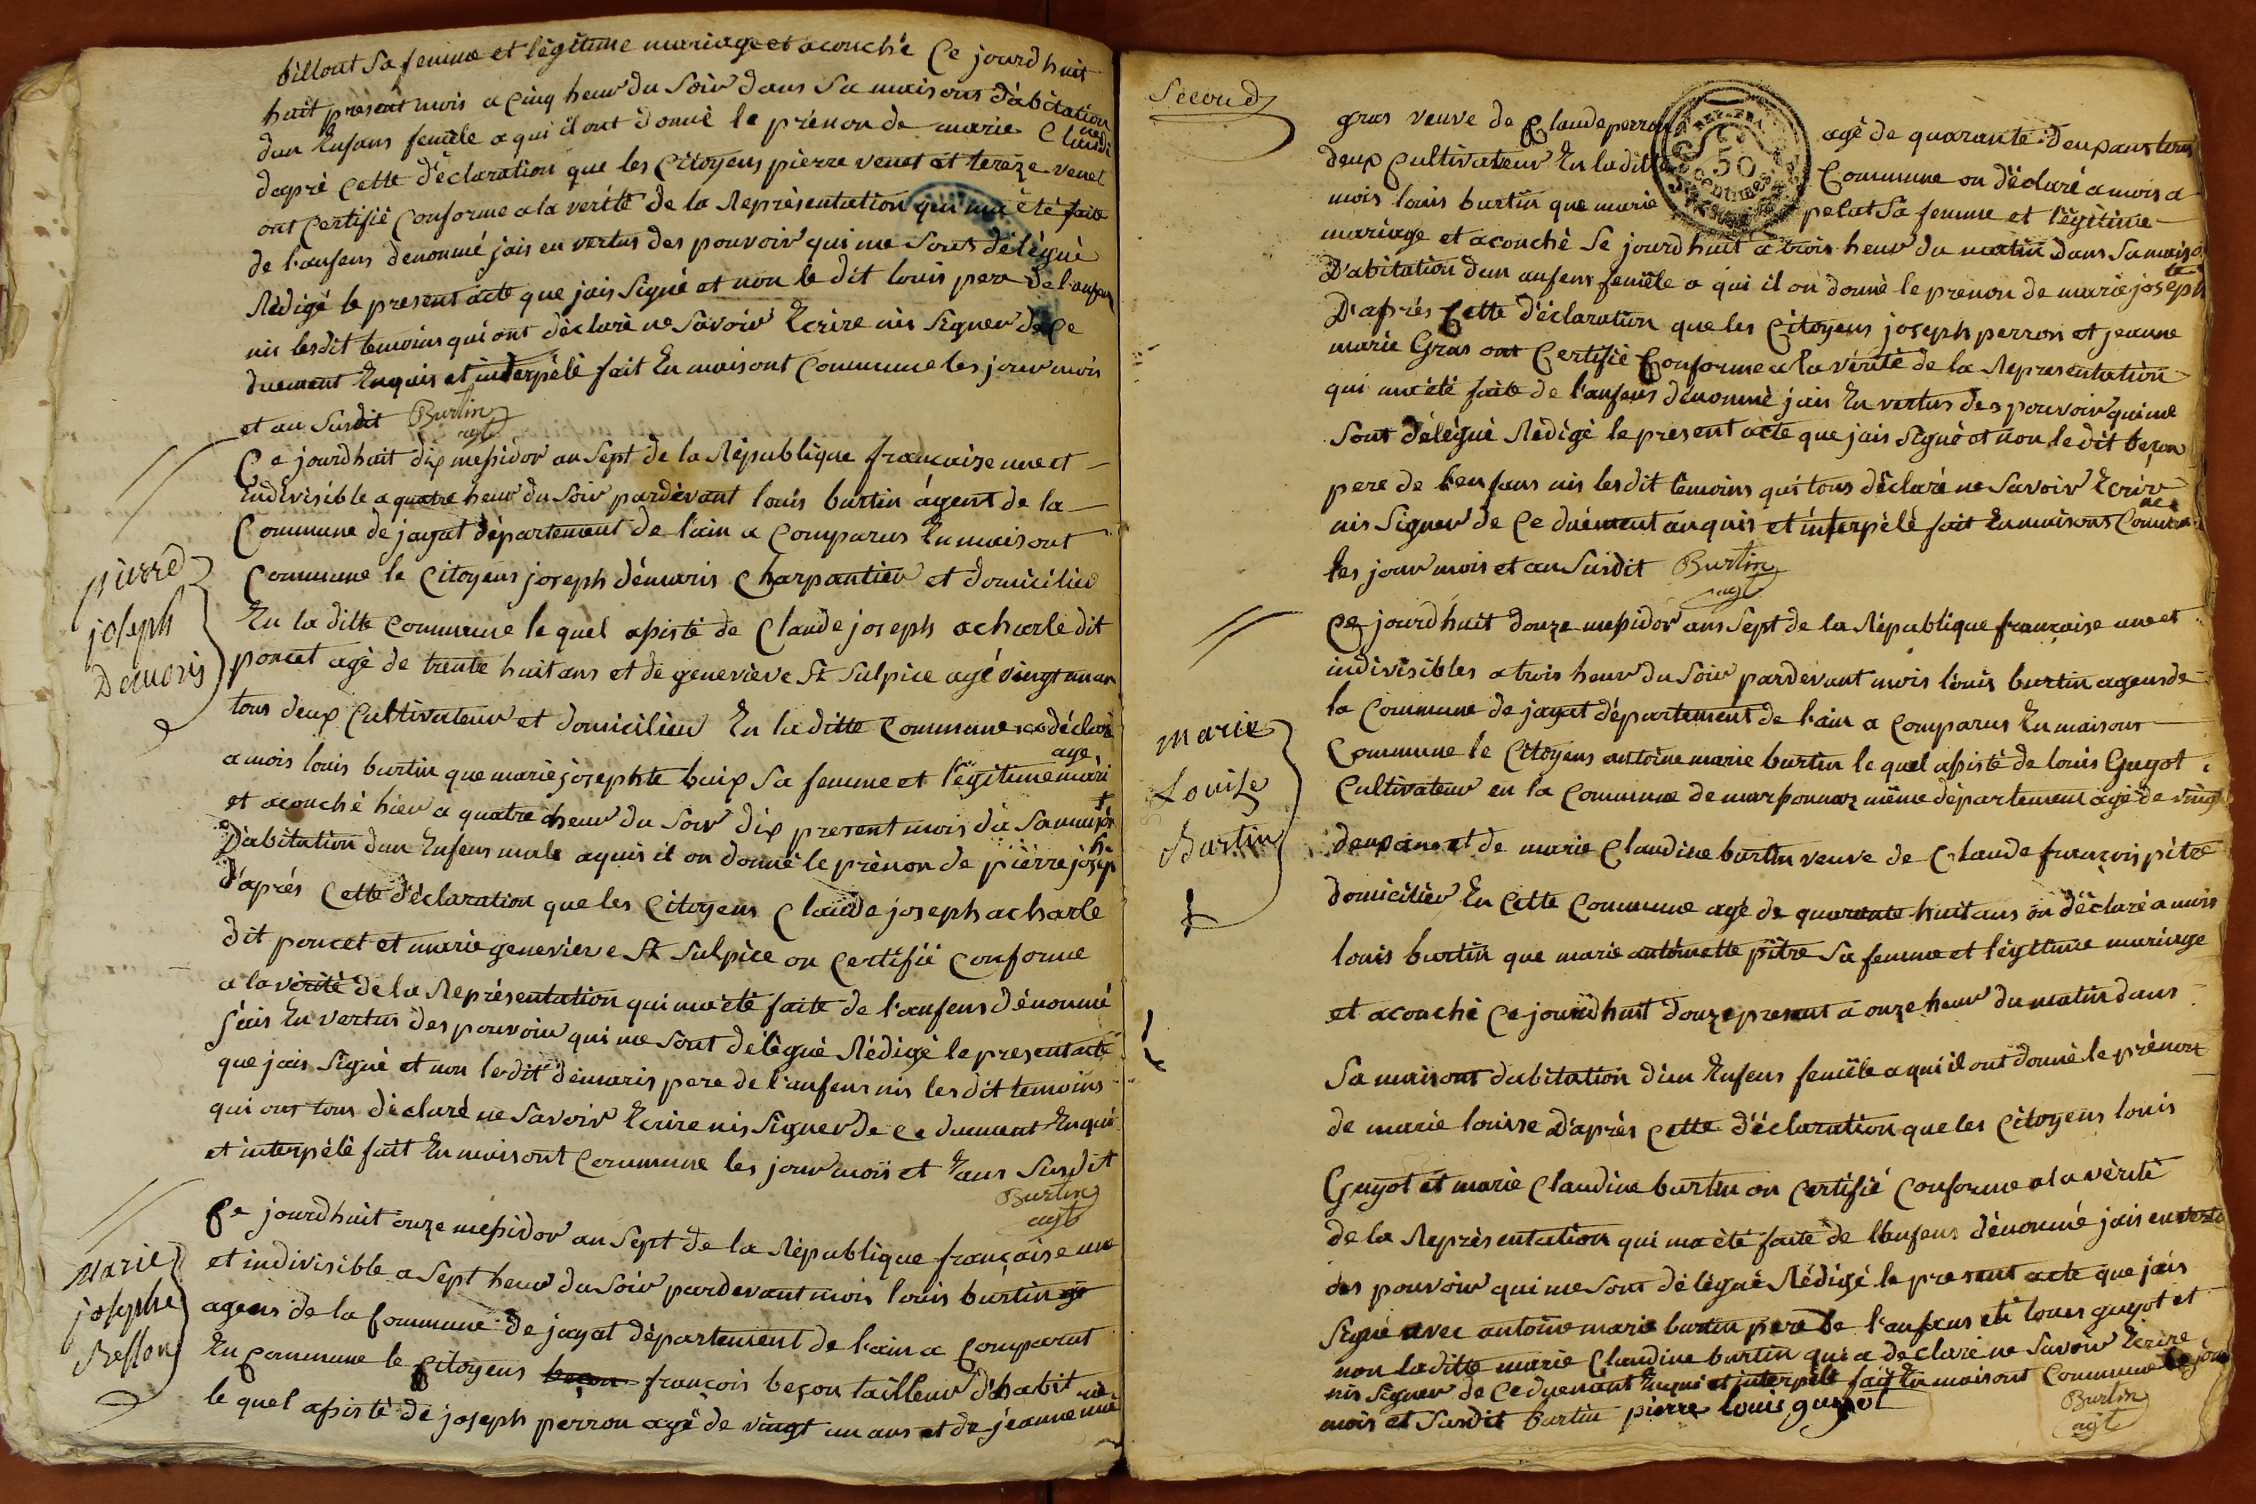 billout Sa femme et légitime mariage et acouché Ce jourdhuit
huit present mois a Cinq heur du Soir dans Sa maisons d'abitation
dun Enfans femêle a qui il ont donné le prénon de marie Claudi
ne
daprè Cette déclaration que les Citoyens pierre venet et tereze venet
ont Certifié Conforme a la verité de la Représentation qui ma été faitte
de l'anfens denommé jais en vertus des pouvoir qui me Sont délégué
Rédigé le present acte que jais Signé et non le dit louis pere de l'anfens
nis lesdit temoins qui ont déclaré ne Savoir Ecrire nis Signer de Ce
duement Enquis et interpélé fait En maisont Commune les jour mois
et an Susdit Burtin
agt
Ce jourdhuit dix messidor an Sept de la République francaise une et
Indivisible a quatre heur du Soir pardevant louis burtin ágent de la
Commune de jayat département de l'ain a Comparus En maisont
Commune le Citoyens joseph démaris Charpantier et domicilier
En la ditte Commune le quel assisté de Claude joseph acharle dit
poncet agé de trente huit ans et de genevieve St Sulpice agé vingt un an
tous deux Cultivateur et domicilier En la ditte Commune on déclaré
a mois louis burtin que marie josephte buix Sa femme et légitime mari
age
et acouché hier a quatre heur du Soir dix present mois
D'abitation dun Enfens male aquis il on donné le prénon de pièrre josep
h
d'aprés Cette déclaration que les Citoyens Claude joseph acharle
dit poncet et marie genevieve St Sulpice on Certifié Conforme
a la vérité de la Représentation qui ma été faite de l'anfens dénommé
j'ais En vertus des pouvoir qui me Sont délégué Rédigé le present acte
que jais Signé et non ledit démaris pere de l'anfens nis les dit temoins
qui ont tous déclaré ne Savoir Ecrire nis Signer de Ce duement Enqui
et interpélé fait En maisont Commune les jour mois et Eans Susdit
Burtin
agt
Ce jourdhuit onze messidor an Sept de la République française une
et indivisible a Sept heur du Soir pardevant mois louis burtin
agens de la Commune de jayat département de l'ain a Comparut
En Commune le Citoyens beçon françois beçon tailleur d'habit
le quel assisté de joseph perron agé de vingt un ans et de jeanne marie
pierre
joseph
Demoris
Marie
josephe
Besson
Second
gras veuve de Claude perron agé de quarante deux ans tous
deux Cultivateur En la ditte Commune on déclaré a mois a
mois louis burtin que marie pelut Sa femme et légitime
mariage et acouché Se jourdhuit a trois heur du matin dans Sa maison
D'abitation dun anfens femêle a qui il on donné le prenon de marie joseph
te
D'aprés Cette déclaration que les Citoyens joseph perron et jeanne
marie Gras ont Certifié Conforme a la vérité de la Representation
qui ma été faite de l'anfens dénommé jais En vertus des pouvoir qui me
Sont délégué Rédigé le present acte que jais Signé et non le dit beçon
pere de l'enfans nis lesdit témoins qui tous déclaré ne Savoir Ecrire
nis Signer de Ce duément anquis et interpélé fait En maisons Commu
ne
les jour mois et an Susdit Burtin
agt
Ce jourdhuit douze messidor ans Sept de la République française une et
indivisibles a trois heur du Soir pardevant mois louis burtin agens de
la Commune de jayat département de l'ain a Comparus En maisons
Commune le Citoyens antoine marie burtin le quel assisté de louis Guyot
Cultivateur en la Commune de marsonnaz même département agé de vingt
deux ans et de marie Claudine burtin veuve de Claude françois pitre
domicilier En Cette Commune agé de quarante huit ans on déclaré a mois
louis burtin que marie antoinette pitre Sa femme et légitime mariage
et acouché Ce jourdhuit douze present a onze heur du matin dans
Sa maisont dabitation d'un Enfens femêle a qui il ont donné le prénon
de marie louise D'après Cette déclaration que les Citoyens louis
Guyot et marie Claudine burtin on Certifié Conforme a la vérité
de la Représentation qui ma été faite de l'Enfens dénommé jais en vertu
des pouvoir qui me Sont délégué Rédigé le present acte que jais
Signé avec antoine marie burtin pere de l'anfans et louis guyot et
non la ditte marie Claudine burtin qui a declaré ne Savoir Ecrire
nis Signer de Ce duement Enqui et interpélé fait En maisont Commune le jour
mois et Susdit burtin pierre louis guyot
Burtin
agt
Marie
Louise
Burtin
REP. FRA.
50
centimes